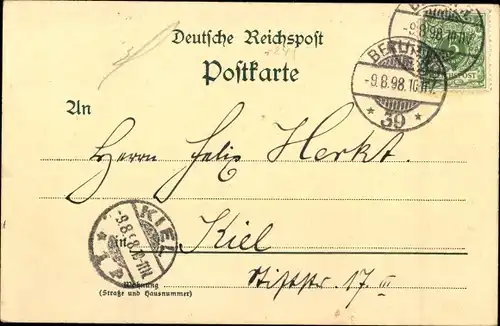 Deutsche Reichspost
Postkarte
BERLIN
-9.8.98.10-11V.
* 39 *
An
Herrn Felix Herkt.
in Kiel
Stiftstr. 17. III
Wohnung
(Straße und Hausnummer)
KIEL
-9.8.98.
* 1 P